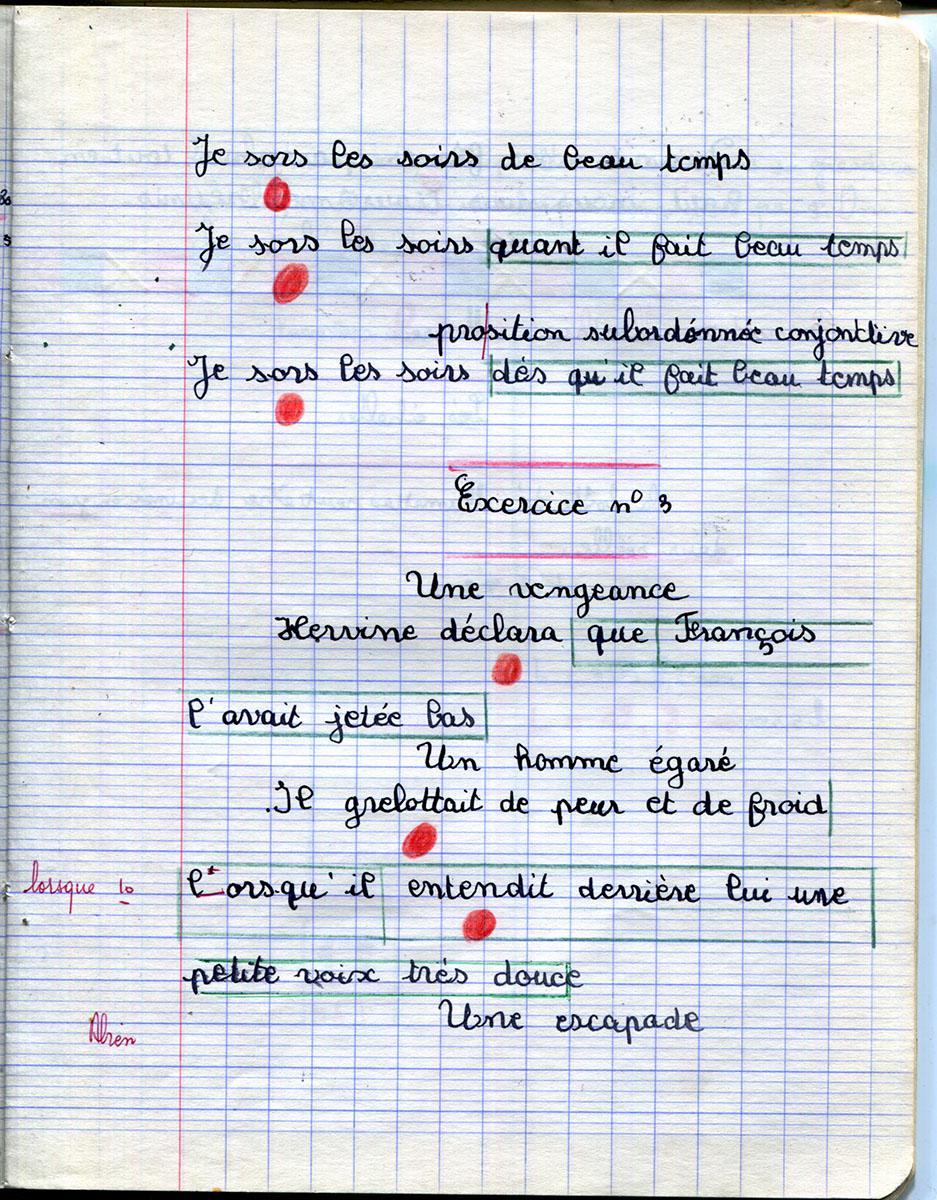 Je sors les soirs de beau temps
Je sors les soirs quant il fait beau temps
proposition subordonnée conjonctive
Je sors les soirs dés qu'il fait beau temps
Excercice n° 3
Une vengeance
Hervine déclara que François
l'avait jetée bas
Un homme égaré
Il grelottait de peur et de froid
lorsque 10 l'orsqu'il entendit derrière lui une
petite voix trés douce
Une escapade